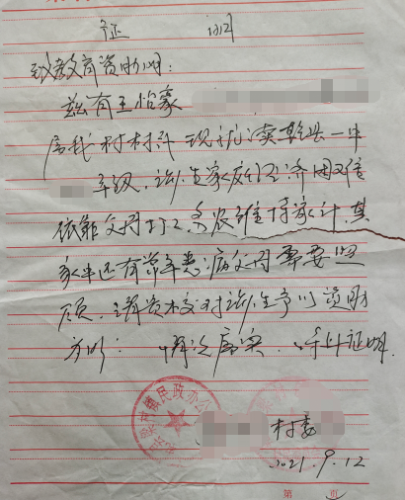 证 明
致教育资助办:
兹有王怡豪
属我村村民 现就读乾县一中
年级,该生家庭经济困难 仅
依靠父母打工 务农维持家计,其
家中还有常年患病父母需要照
顾,请贵校对该生予以资助
为盼: 情况属实,特此证明.
镇民政办公
村委
2021.9.12
第 页